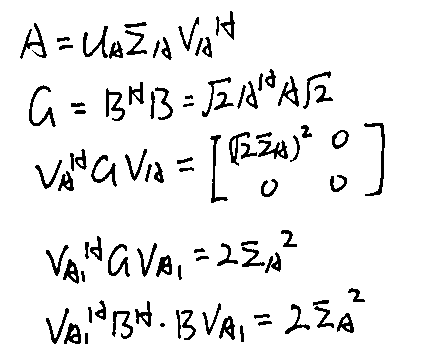 A = U_A Σ_A V_A^H
G = B^H B = √2 A^H A √2
V_A^H G V_A = [ (√2 Σ_A)^2 0 ; 0 0 ]
V_{A_1}^H G V_{A_1} = 2 Σ_A^2
V_{A_1}^H B^H · B V_{A_1} = 2 Σ_A^2